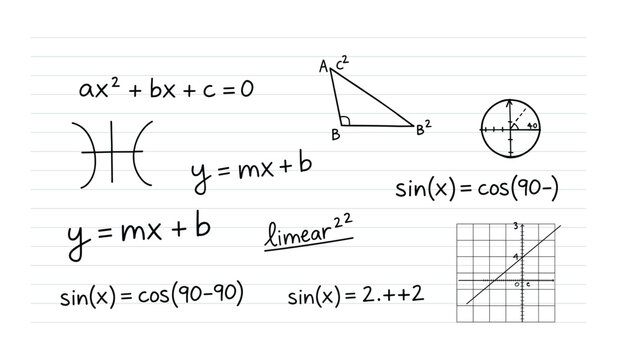 ax² + bx + c = 0
A c²
B B²
40
y = mx + b
sin(x) = cos(90-)
y = mx + b
limear²²
3
sin(x) = cos(90-90)
sin(x) = 2.++2